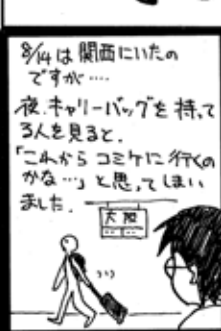 8/14は関西にいたの
ですが‥‥
夜、キャリーバッグを持って
る人を見ると、
「これからコミケに行くの
かな…」と思ってしまい
ました.
大阪